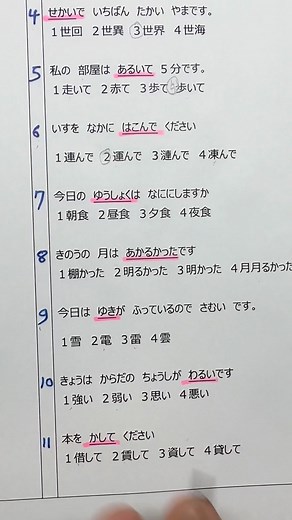 4 せかいで いちばん たかい やまです。
1世回 2世異 3世界 4世海
5 私の 部屋は あるいて 5分です。
1走いて 2赤て 3歩て 4歩いて
6 いすを なかに はこんで ください
1連んで 2運んで 3漣んで 4凍んで
7 今日の ゆうしょくは なににしますか
1朝食 2昼食 3夕食 4夜食
8 きのうの 月は あかるかったです
1棚かった 2明るかった 3明かった 4月月るかった
9 今日は ゆきが ふっているので さむい です。
1雪 2電 3雷 4雲
10 きょうは からだの ちょうしが わるいです
1強い 2弱い 3思い 4悪い
11 本を かして ください
1借して 2賃して 3資して 4貸して